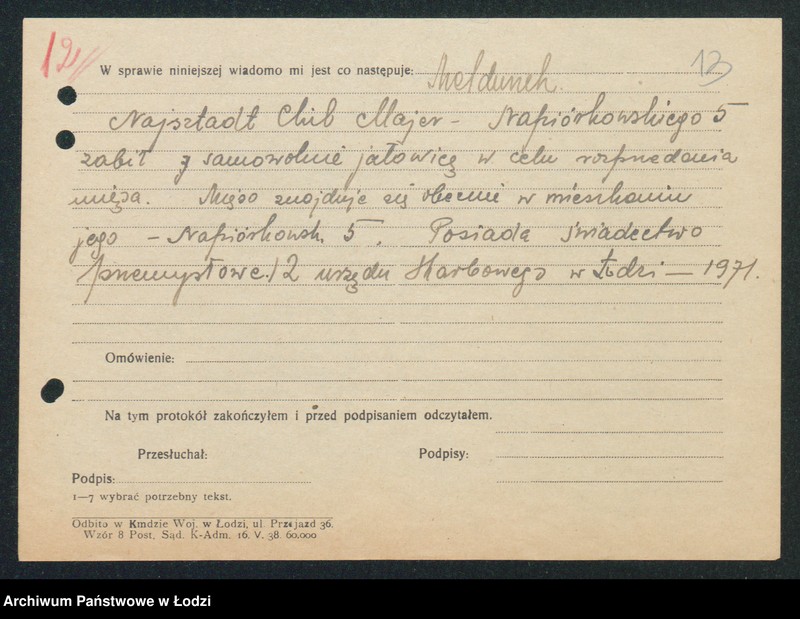 12
13
W sprawie niniejszej wiadomo mi jest co następuje: Meldunek.
Najsztadt Chil Majer – Napiórkowskiego 5
zabił samowolnie jałowicę w celu rozprzedania
mięsa. Mięso znajduje się obecnie w mieszkaniu
jego – Napiórkowsk. 5. Posiada świadectwo
przemysłowe / 2 urzędu Skarbowego w Łodzi – 1971.
Omówienie:
Na tym protokół zakończyłem i przed podpisaniem odczytałem.
Przesłuchał: Podpisy:
Podpis:
1—7 wybrać potrzebny tekst.
Odbito w Kmdzie Woj. w Łodzi, ul. Przejazd 36.
Wzór 8 Post. Sąd. K-Adm. 16. V. 38. 60.000
Archiwum Państwowe w Łodzi